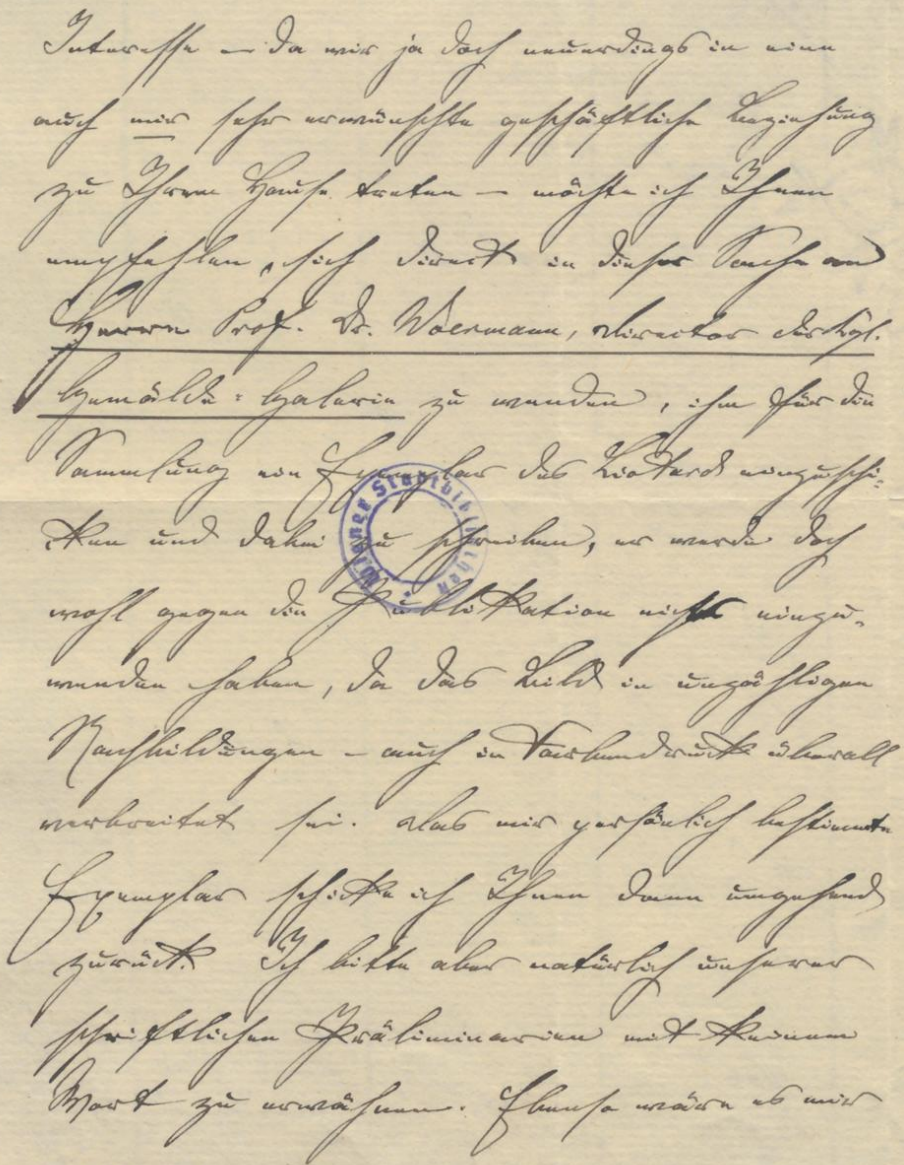 Interesse – da wir ja doch neuerdings in eine
auch mir sehr erwünschte geschäftliche Beziehung
zu Ihrem Hause treten – möchte ich Ihnen
empfehlen, sich direct in dieser Sache an
Herrn Prof. Dr. Woermann, Director der Kgl.
Gemälde-Galerie zu wenden, ihm für die
Sammlung ein Exemplar des Liotard einzuschi-
cken und dabei zu schreiben, er werde doch
wohl gegen die Publikation nichts einzu-
wenden haben, da das Bild in unzähligen
Nachbildungen – auch in Farbendruck überall
verbreitet sei. Das mir persönlich bestimmte
Exemplar schicke ich Ihnen dann umgehend
zurück. Ich bitte aber natürlich unserer
schriftlichen Präliminarien mit keinem
Wort zu erwähnen. Ebenso wäre es mir
Wiener Stadtbibliothek